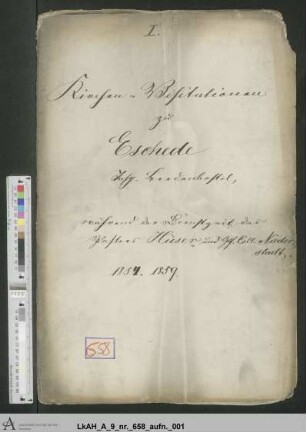 I.
Kirchen-Visitationen
zu
Eschede
Insp. Beedenbostel,
während der Dienstzeit des
Pastors Hüser und
1854. 1859.
658
LkAH_A_9_nr._658_aufn._001